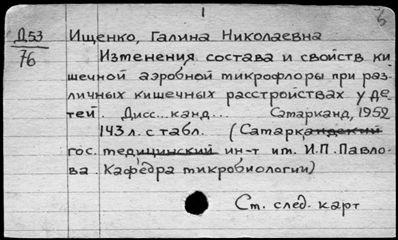 1
Д53 Ищенко, Галина Николаевна
76 Изменения состава и свойств ки
шечной аэробной микрофлоры при раз
личных кишечных расстройствах у де
тей. Дисс... канд... Самарканд, 1952
143 л. с табл. (Самаркандский
гос. медицинский ин-т им. И.П. Павло
ва. Кафедра микробиологии)
См. след. карт